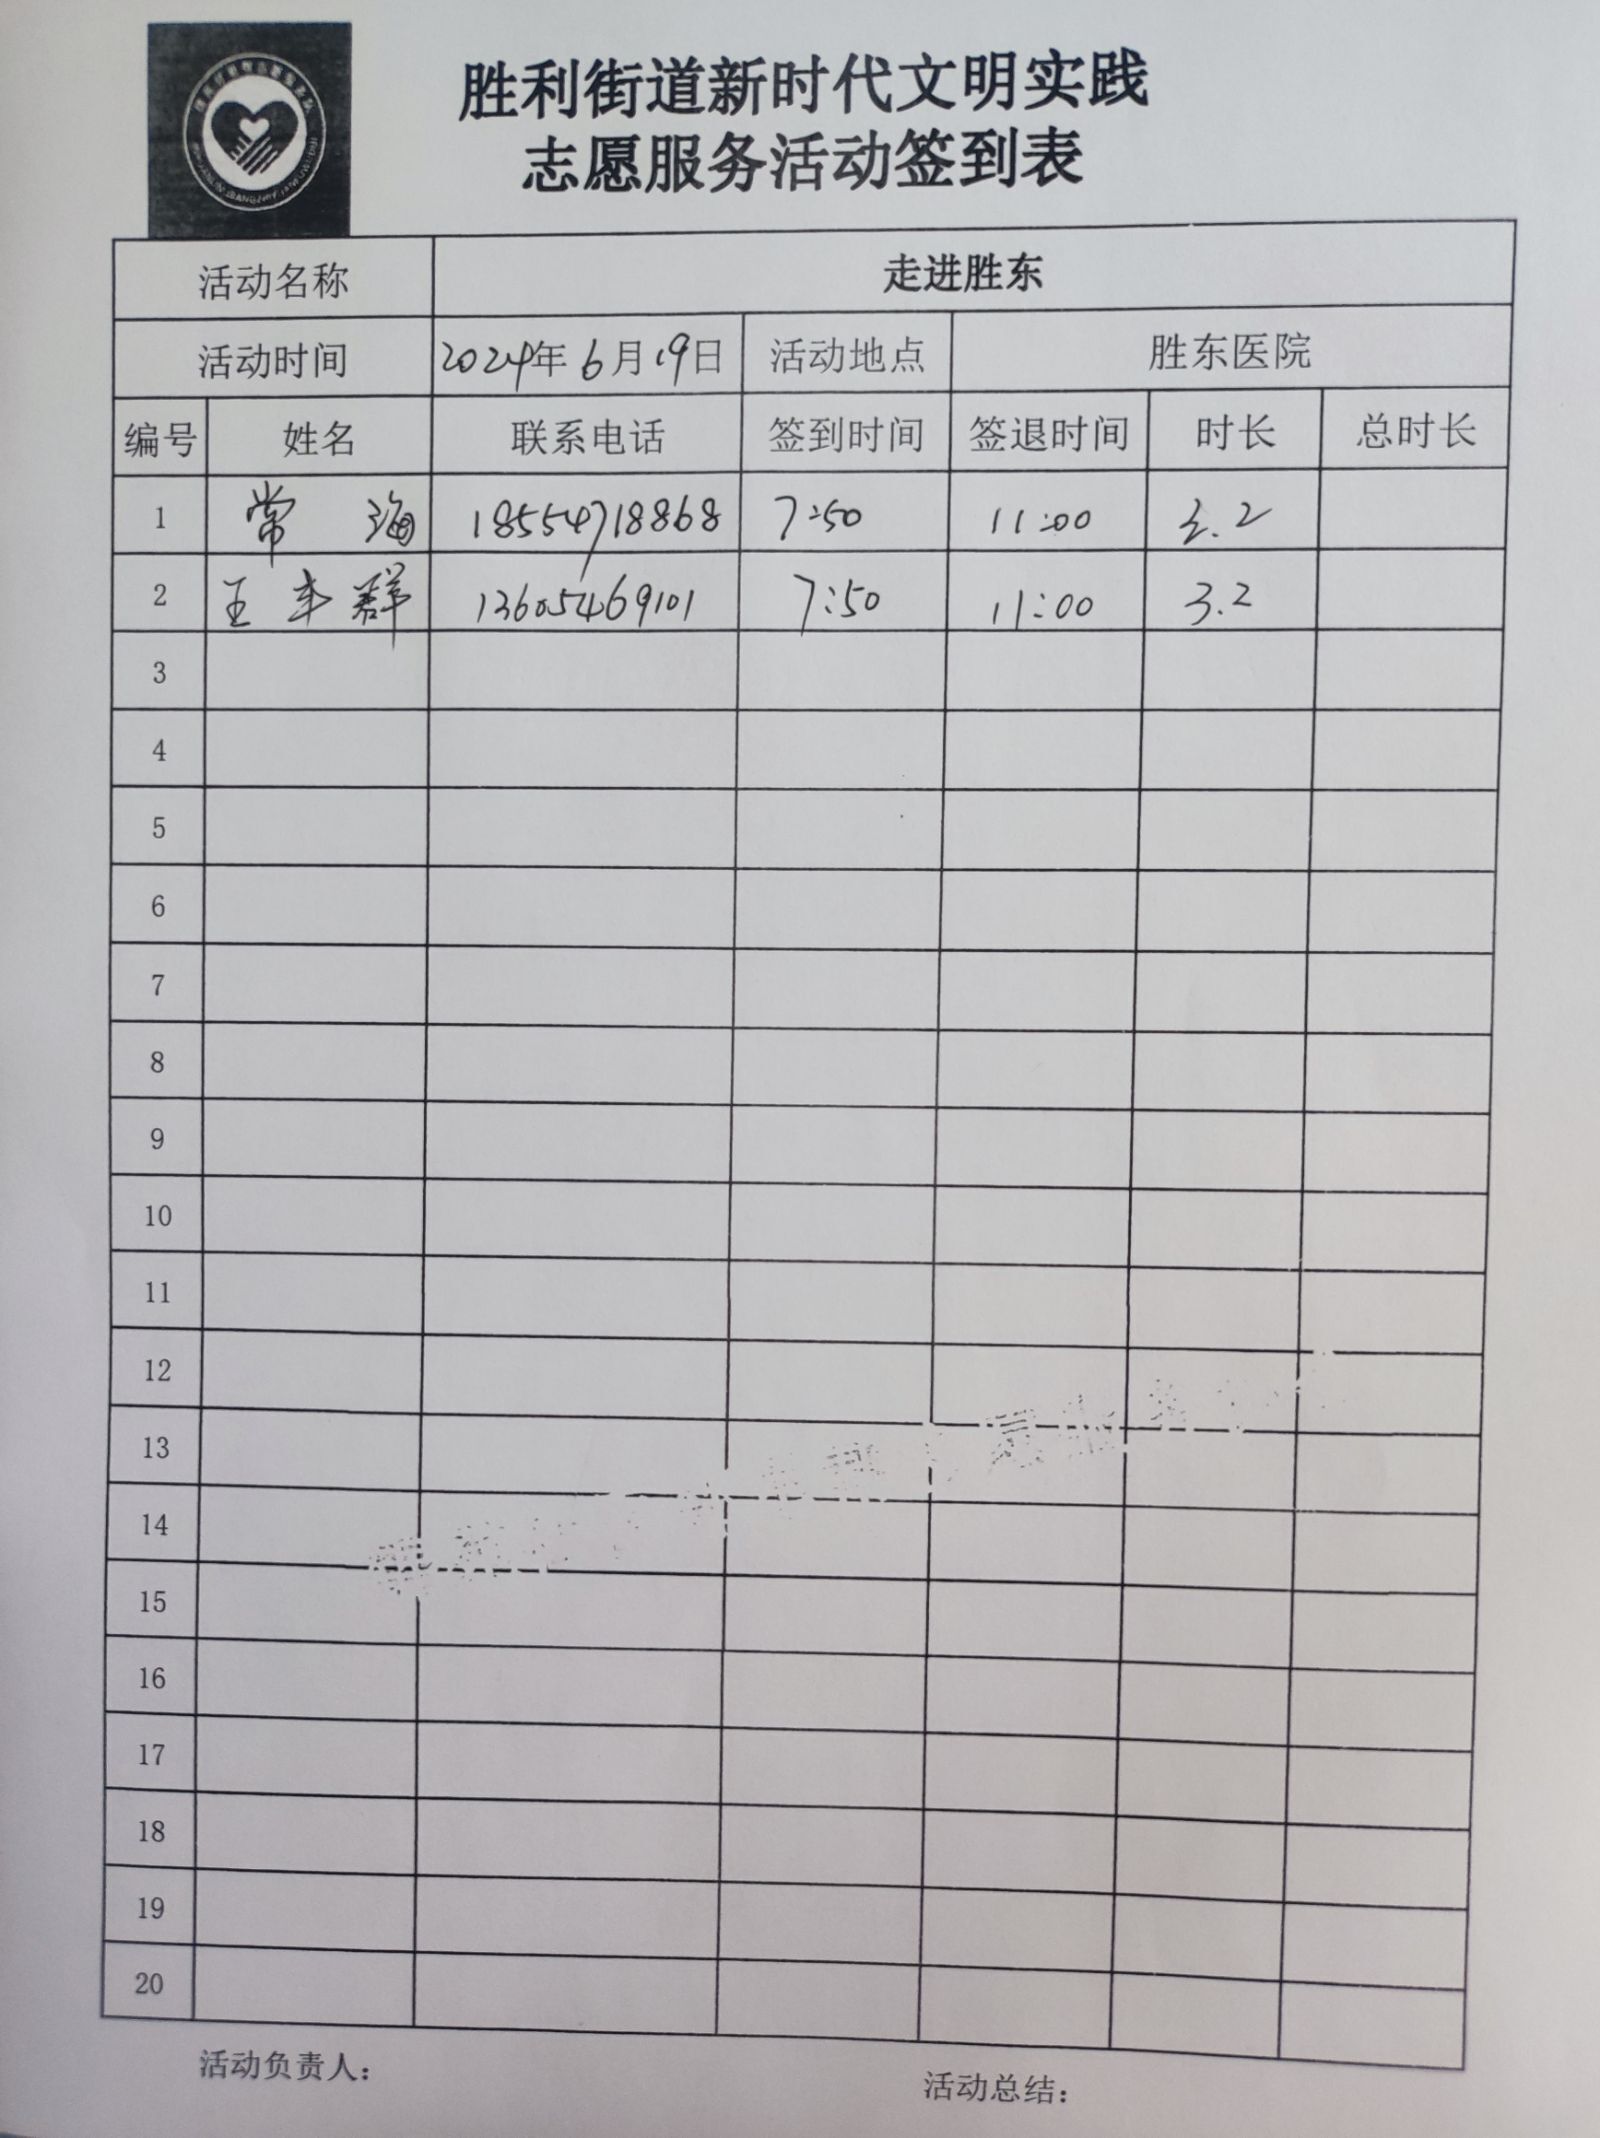 胜利街道新时代文明实践
志愿服务活动签到表
活动名称 走进胜东
活动时间 2024年6月19日 活动地点 胜东医院
编号 姓名 联系电话 签到时间 签退时间 时长 总时长
1 常海 18554718868 7:50 11:00 3.2
2 王丰群 13605469101 7:50 11:00 3.2
3
4
5
6
7
8
9
10
11
12
13
14
15
16
17
18
19
20
活动负责人: 活动总结: